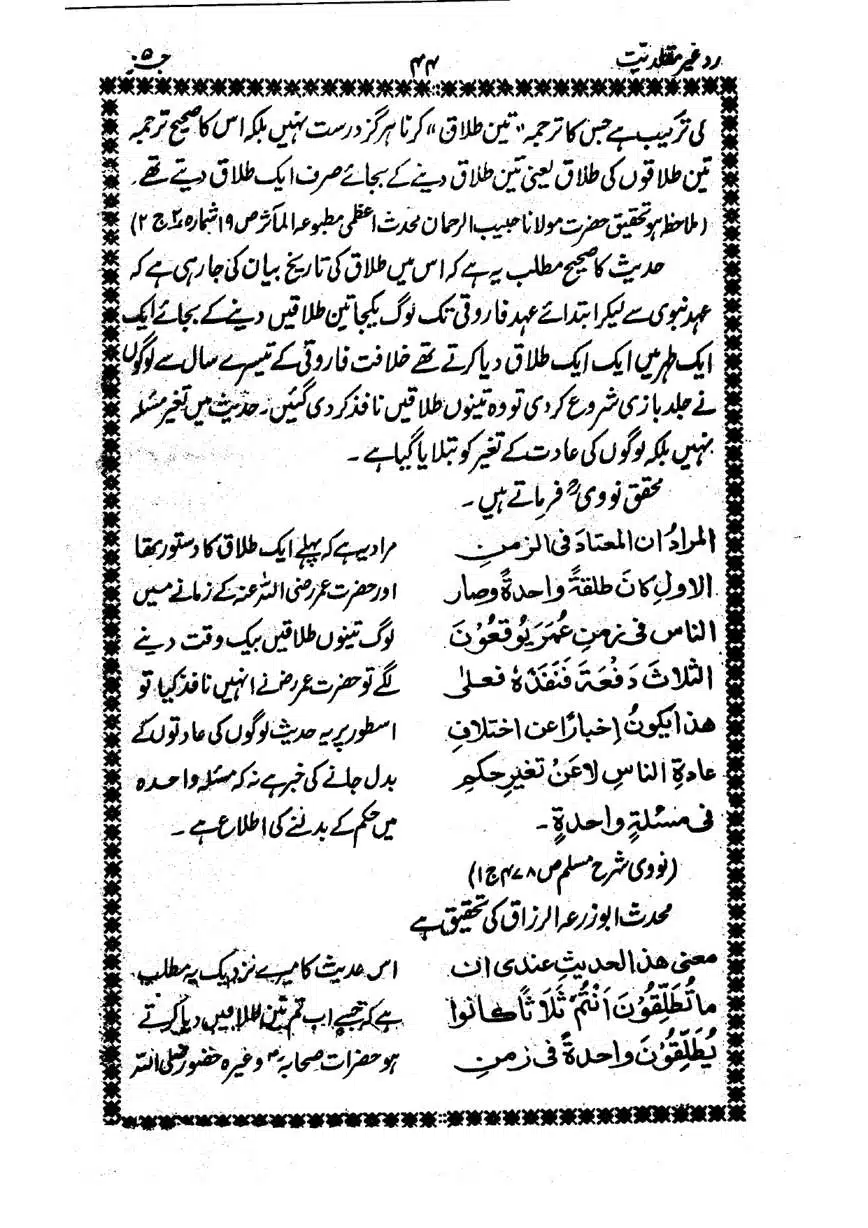 رد غیر مقلدیت ۴۴ جـ ۵
کی ترکیب ہے جس کا ترجمہ "تین طلاق" کرنا ہرگز درست نہیں بلکہ اس کا صحیح ترجمہ
تین طلاقوں کی طلاق یعنی تین طلاق دینے کے بجائے صرف ایک طلاق دیتے تھے۔
(ملاحظہ ہو تحقیق حضرت مولانا حبیب الرحمان محدث اعظمی مطبوعہ المآثر ص ۱۹ شمارہ ۲ ج ۲)
حدیث کا صحیح مطلب یہ ہے کہ اس میں طلاق کی تاریخ بیان کی جا رہی ہے کہ
عہد نبوی سے لیکر ابتدائے عہد فاروقی تک لوگ یکجا تین طلاقیں دینے کے بجائے ایک
ایک طہر میں ایک ایک طلاق دیا کرتے تھے خلافت فاروقی کے تیسرے سال سے لوگوں
نے جلد بازی شروع کر دی تو وہ تینوں طلاقیں نافذ کر دی گئیں۔ حدیث میں تغیر مسئلہ
نہیں بلکہ لوگوں کی عادت کے تغیر کو بتلایا گیا ہے۔
محقق نوویؒ فرماتے ہیں۔
المرادُ ان المعتادَ فی الزمنِ
الاولِ کانَ طلقةً واحدةً وصار
الناس فی زمنِ عمرَ یُوقعُوْنَ
الثلاثَ دَفْعَةً فَنَفَذَہٗ فعلیٰ
ھذا یکونُ إخبارًا عن اختلافِ
عادةِ الناسِ لاعَنْ تغیرِ حکمِ
فی مسئلةٍ واحدةٍ۔
مراد یہ ہے کہ پہلے ایک طلاق کا دستور تھا
اور حضرت عمر رضی اللہ عنہ کے زمانے میں
لوگ تینوں طلاقیں بیک وقت دینے
لگے تو حضرت عمرؓ نے انہیں نافذ کیا تو
اسطور پر یہ حدیث لوگوں کی عادتوں کے
بدل جانے کی خبر ہے نہ کہ مسئلہ واحدہ
میں حکم کے بدلنے کی اطلاع ہے۔
(نووی شرح مسلم ص ۴۷۸ ج ۱)
محدث ابو زرعہ الرزاق کی تحقیق ہے
معنی ھذا الحدیثِ عندی ان
ما تُطَلِّقُوْنَ أَنْتُمْ ثَلَاثًا کانوا
یُطَلِّقُوْنَ واحدةً فی زمنِ
اس حدیث کا میرے نزدیک یہ مطلب
ہے کہ جیسے اب تم تین طلاقیں دیا کرتے
ہو حضرات صحابہؓ وغیرہ حضور صلی اللہ